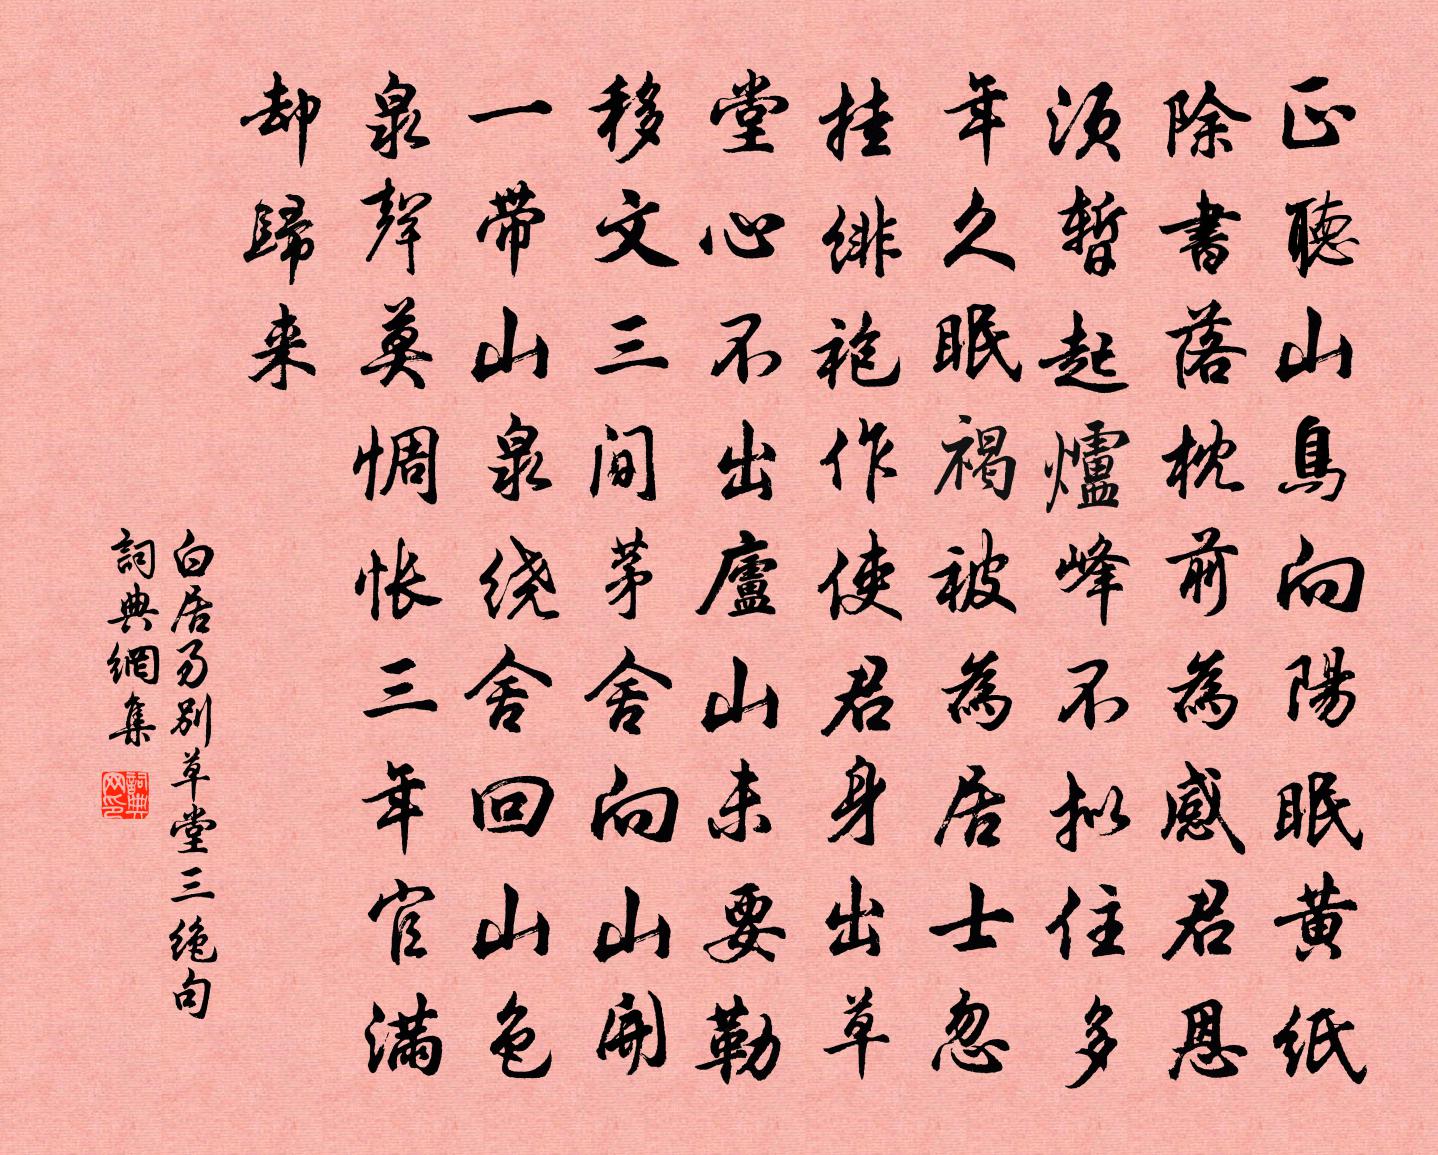 正聽山鳥向陽眠黄紙
除書落枕前為感君恩
須暫起爐峰不拟住多
年久眠褐被為居士忽
挂緋袍作使君身出草
堂心不出廬山未要勒
移文三间茅舍向山開
一带山泉绕舍回山色
泉聲莫惆怅三年官满
却歸来
白居易别草堂三绝句
詞典網集
詞典网印